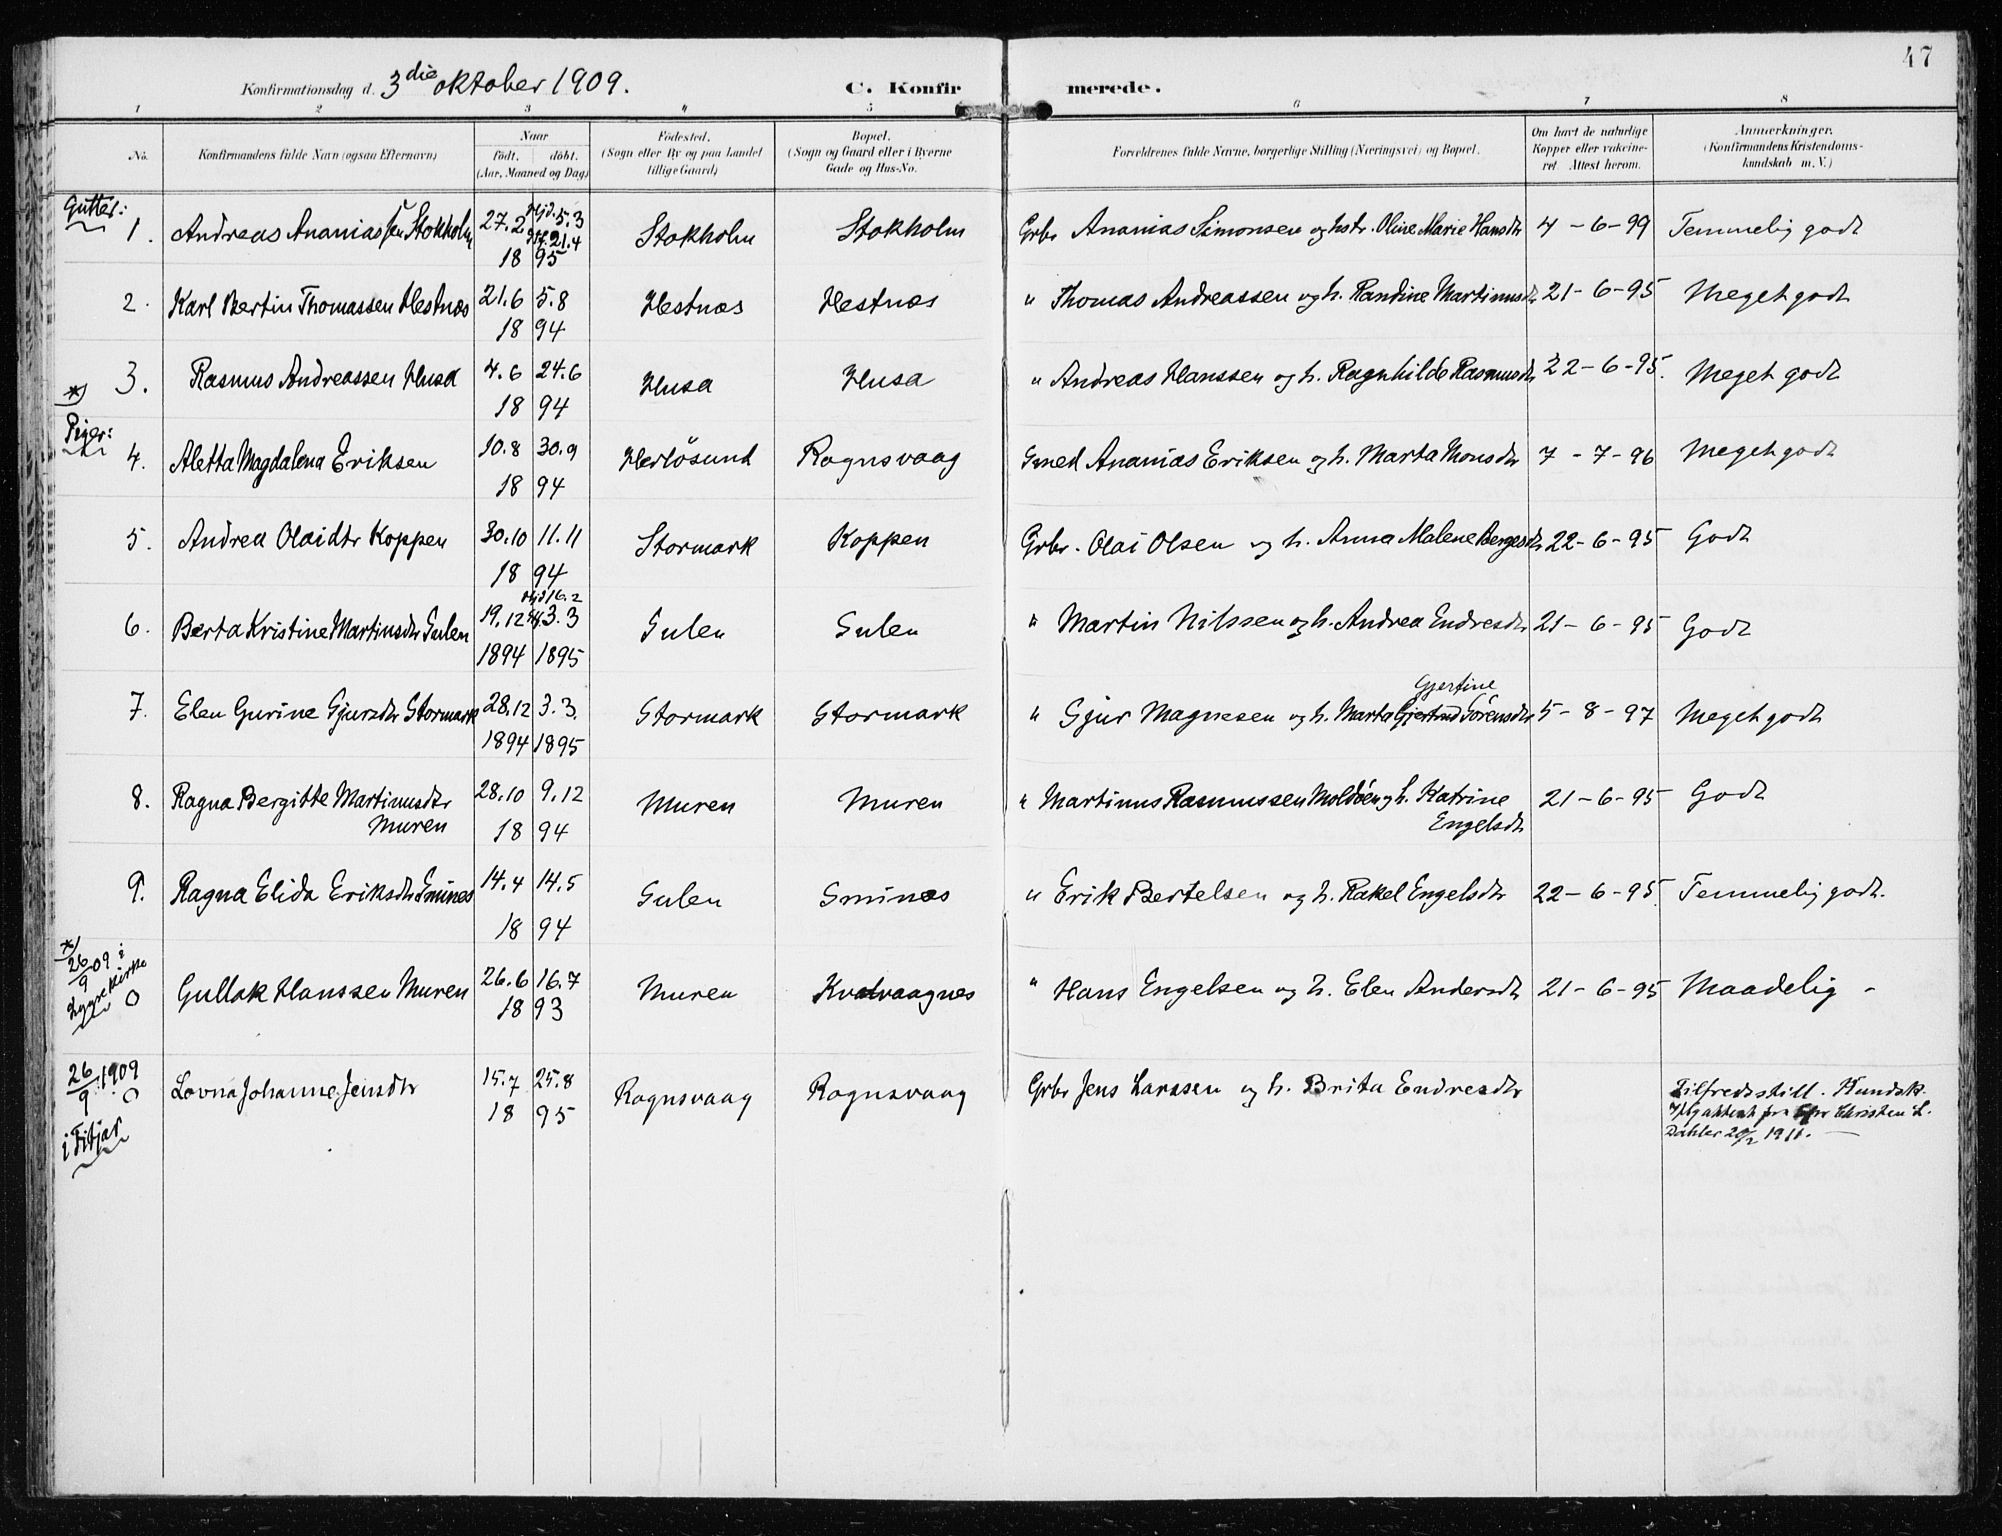 47
Konfirmationsdag d. 3die oktober 1909. C. Konfirmerede.
1 2 3 4 5 6 7 8
No. Konfirmandens fulde Navn (ogsaa Efternavn) Naar födt. döbt. (Aar, Maaned og Dag) Födested. (Sogn eller By og paa Landet tillige Gaard) Bopæl. (Sogn og Gaard eller i Byerne Gade og Hus-No. Forældrenes fulde Navne, borgerlige Stilling (Næringsvei) og Bopæl. Om havt de naturlige Kopper eller vakcineret. Attest herom. Anmerkninger. (Konfirmandens Kristendomskundskab m. V.)
Gutter:
1. Andreas Ananiassen Stokholm 27.2 hjd. 5.3 21.4 1895 Stokholm Stokholm Grbr Ananias Simonsen og hstr. Oline Marie Hansdtr 4-6-99 Temmelig godt
2. Karl Bertin Thomassen Hestnæs 21.6 5.8 1894 Hestnæs Hestnæs " Thomas Andreassen og h. Randine Martinusdtr 21-6-95 Meget godt
*) 3. Rasmus Andreassen Husa 4.6 24.6 1894 Husa Husa " Andreas Hanssen og h. Ragnhilde Rasmusdtr 22-6-95. Meget godt
Piger:
4. Aletta Magdalena Eriksen 10.8 30.9 1894 Herlösund Rognsvaag Smed Ananias Eriksen og h. Marta Monsdtr 7-7-96 Meget godt
5. Andrea Olaidtr Koppen 30.10 11.11 1894 Stormark Koppen Grbr. Olai Olsen og h. Anna Malene Bergesdtr 22-6-95 Godt
6. Berta Kristine Martinsdtr Gulen 19.12 1894 hjd 16.2 3.3 1895 Gulen Gulen " Martin Nilssen og h. Andrea Endresdtr 21-6-95 Godt
7. Elen Gurine Gjursdtr Stormark 28.12 1894 3.3. 1895 Stormark Stormark " Gjur Magnesen og h. Marta Gjertrud Gjertine Sörensdtr 5-8-97 Meget godt
8. Ragna Bergitte Martinusdtr Muren 28.10 9.12 1894 Muren Muren " Martinus Rasmussen Moldöen og h. Katrine Engelsdtr 21-6-95 Godt
9. Ragna Elida Eriksdtr Smines 14.4 14.5 1894 Gulen Sminæs " Erik Bertelsen og h. Rakel Engelsdtr 22-6-95. Temmelig godt.
*) 26/9 09 i kirke 0 Gullak Hanssen Muren 26.6 16.7 1893 Muren Kvalvaagnes " Hans Engelsen og h. Elen Andersdtr 21-6-95 Maadelig -
26/9 1909 0 i Fitjar Lovna Johanne Jensdtr 15.7 25.8 1895 Rognsvaag Rognsvaag Grbr Jens Larssen og h. Brita Endresdtr Tilfredsstill. Kundsk.
attest fra Spr Christen L.
Dahler 20/2 1911. —